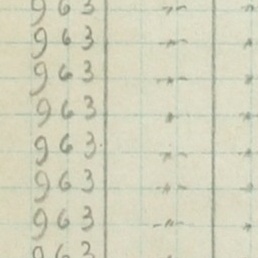 963
963 -"-
963 -"-
963 "
963 "
963 -"-
963 -"-
963 "